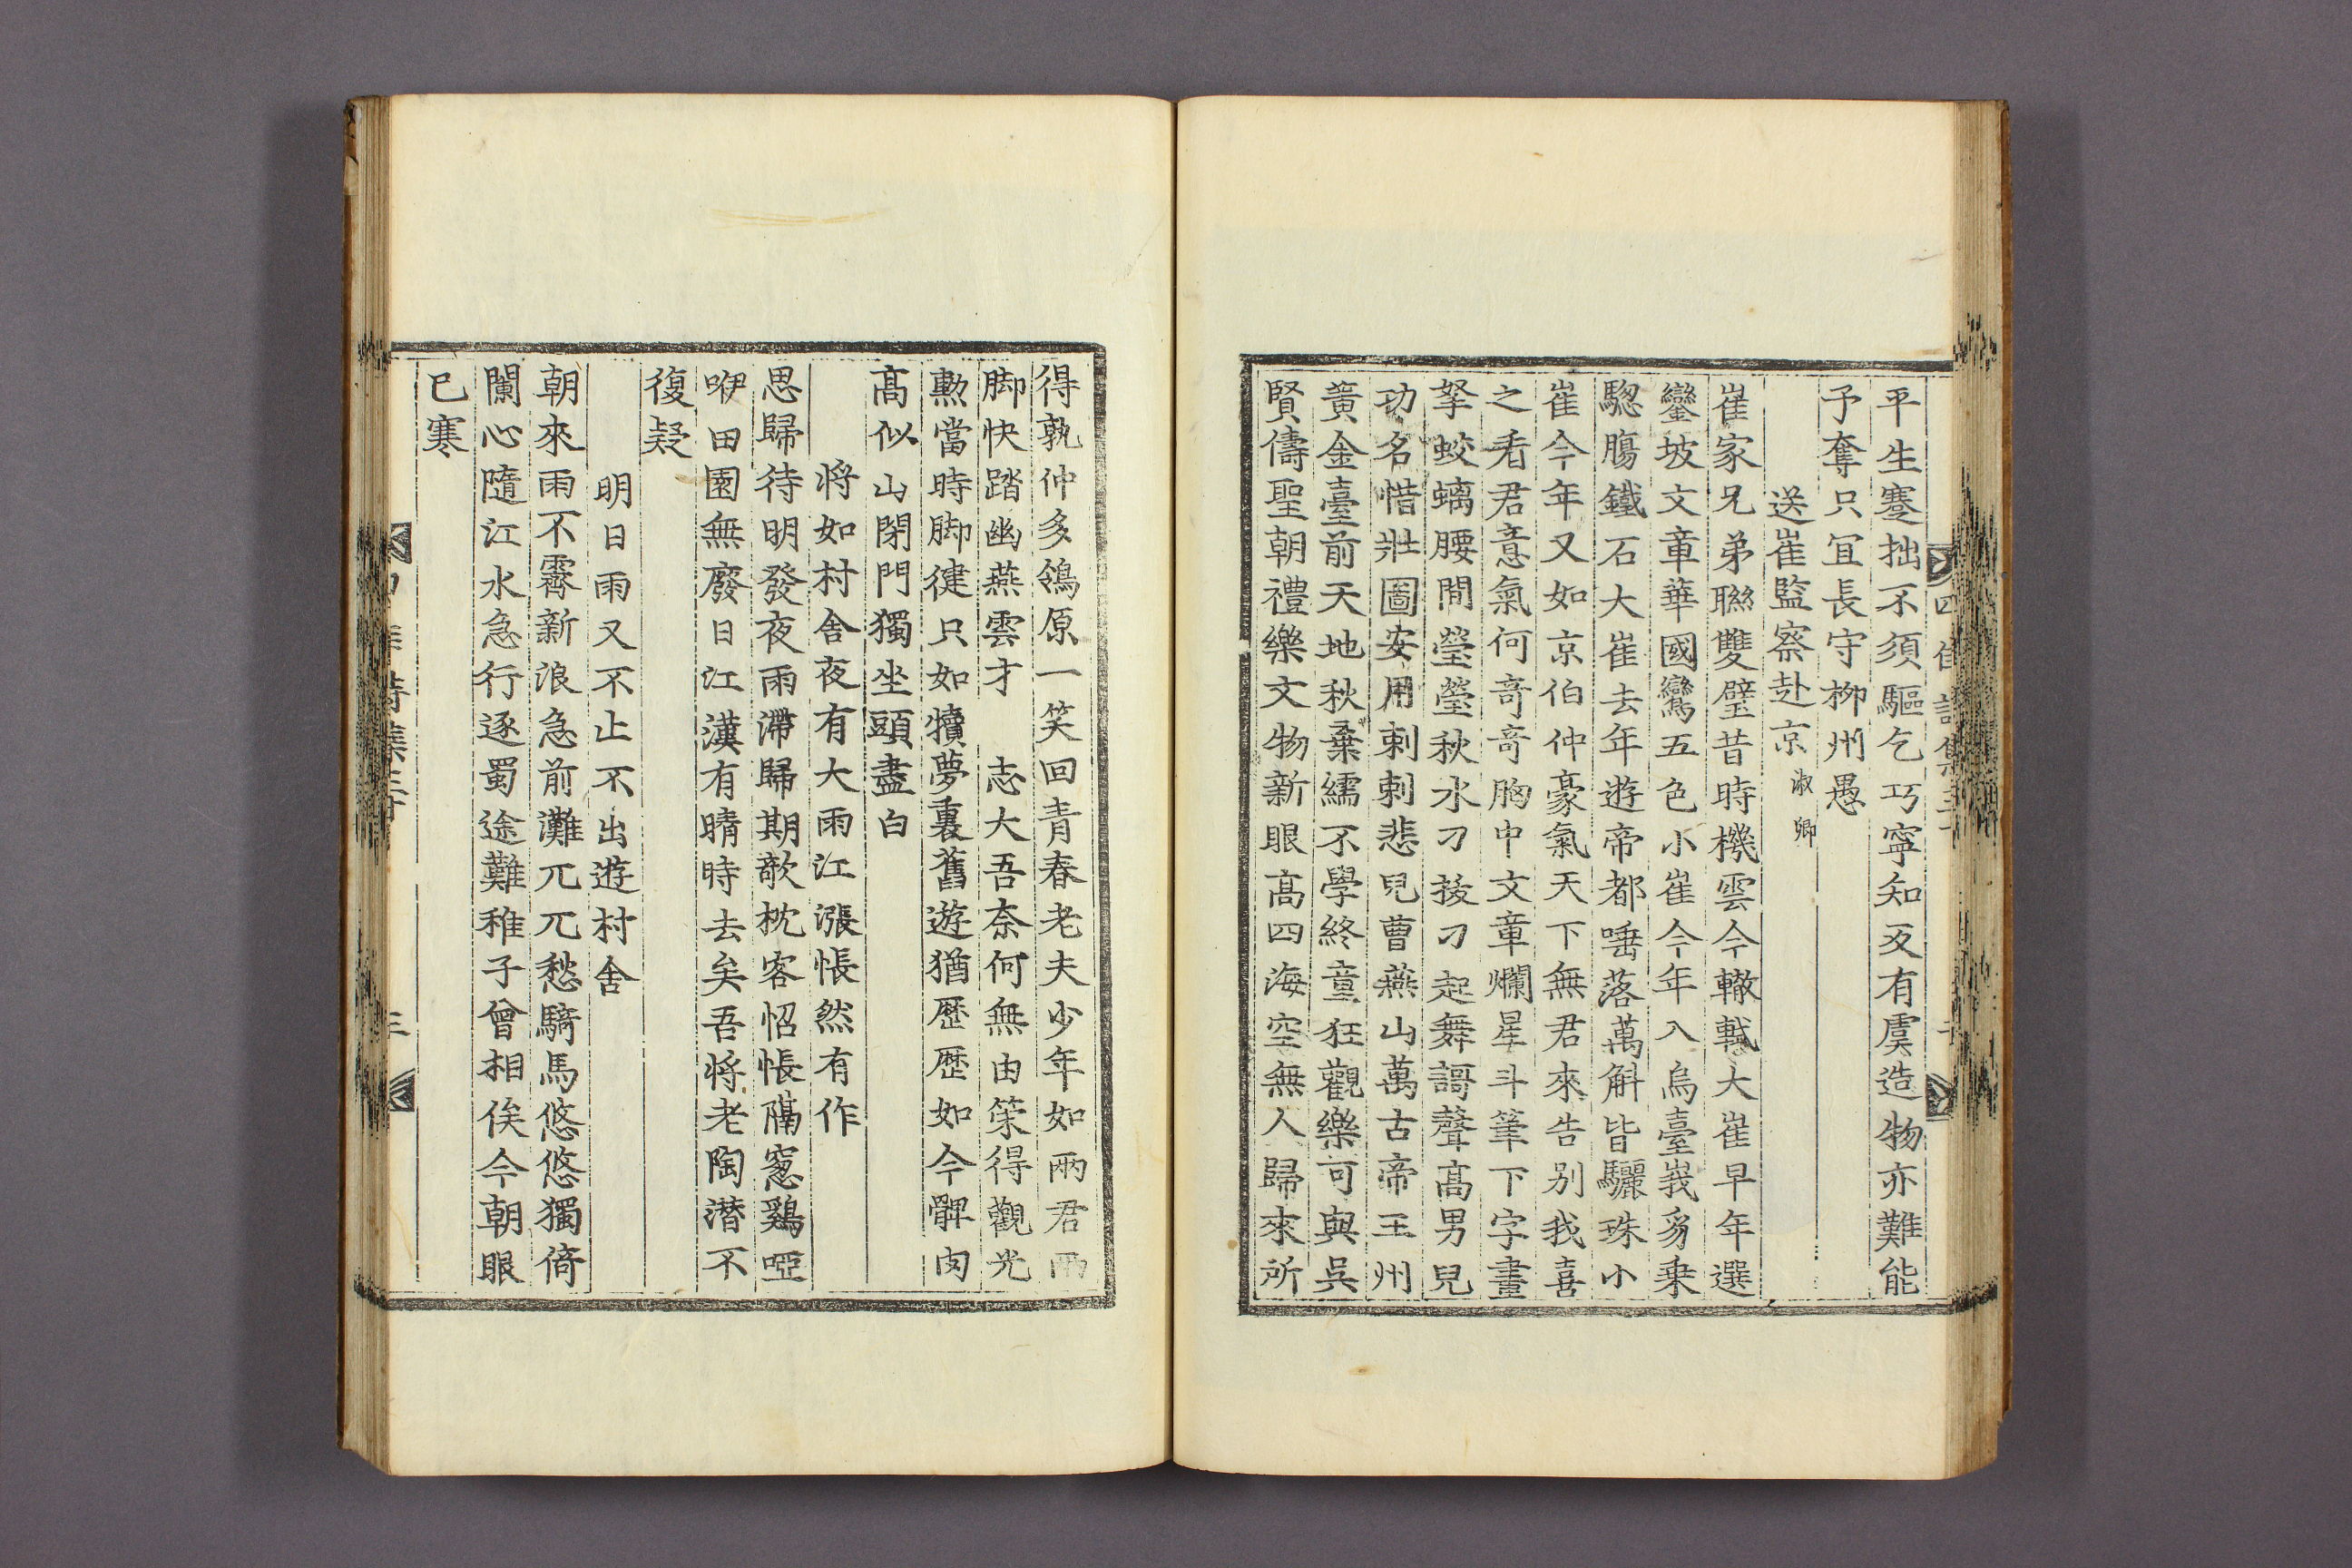 平生蹇拙不須驅乞巧寧知反有虞造物亦難能
予奪只宜長守柳州愚
送崔監察赴京 淑卿
崔家兄弟聯雙璧昔時機雲今轍軾大崔早年選
鑾坡文章華國鸞五色小崔今年入烏臺峩豸乗
驄膓鐵石大崔去年遊帝都唾落萬斛皆驪珠小
崔今年又如京伯仲豪氣天下無君來告別我喜
之看君意氣何奇奇胸中文章爛星斗筆下字畫
拏蛟螭腰間瑩瑩秋水刀拔刀起舞謌聲高男兒
功名惜壯圖安用剌剌悲兒曹燕山萬古帝王州
黃金臺前天地秋棄繻不學終童狂觀樂可與吳
賢儔聖朝禮樂文物新眼高四海空無人歸來所
四佳詩集
得孰仲多鴒原一笑回青春老夫少年如兩君兩
脚快踏幽燕雲才 志大吾奈何無由策得觀光
勲當時脚健只如犢夢裏舊遊猶歷歷如今髀肉
高似山閉門獨坐頭盡白
将如村舍夜有大雨江漲悵然有作
思歸待明發夜雨滯歸期欹枕客怊悵隔窓鷄啞
咿田園無廢日江漢有晴時去矣吾将老陶潛不
復疑
明日雨又不止不出遊村舍
朝來雨不霽新浪急前灘兀兀愁騎馬悠悠獨倚
闌心隨江水急行逐蜀途難稚子曾相俟今朝眼
已寒
三